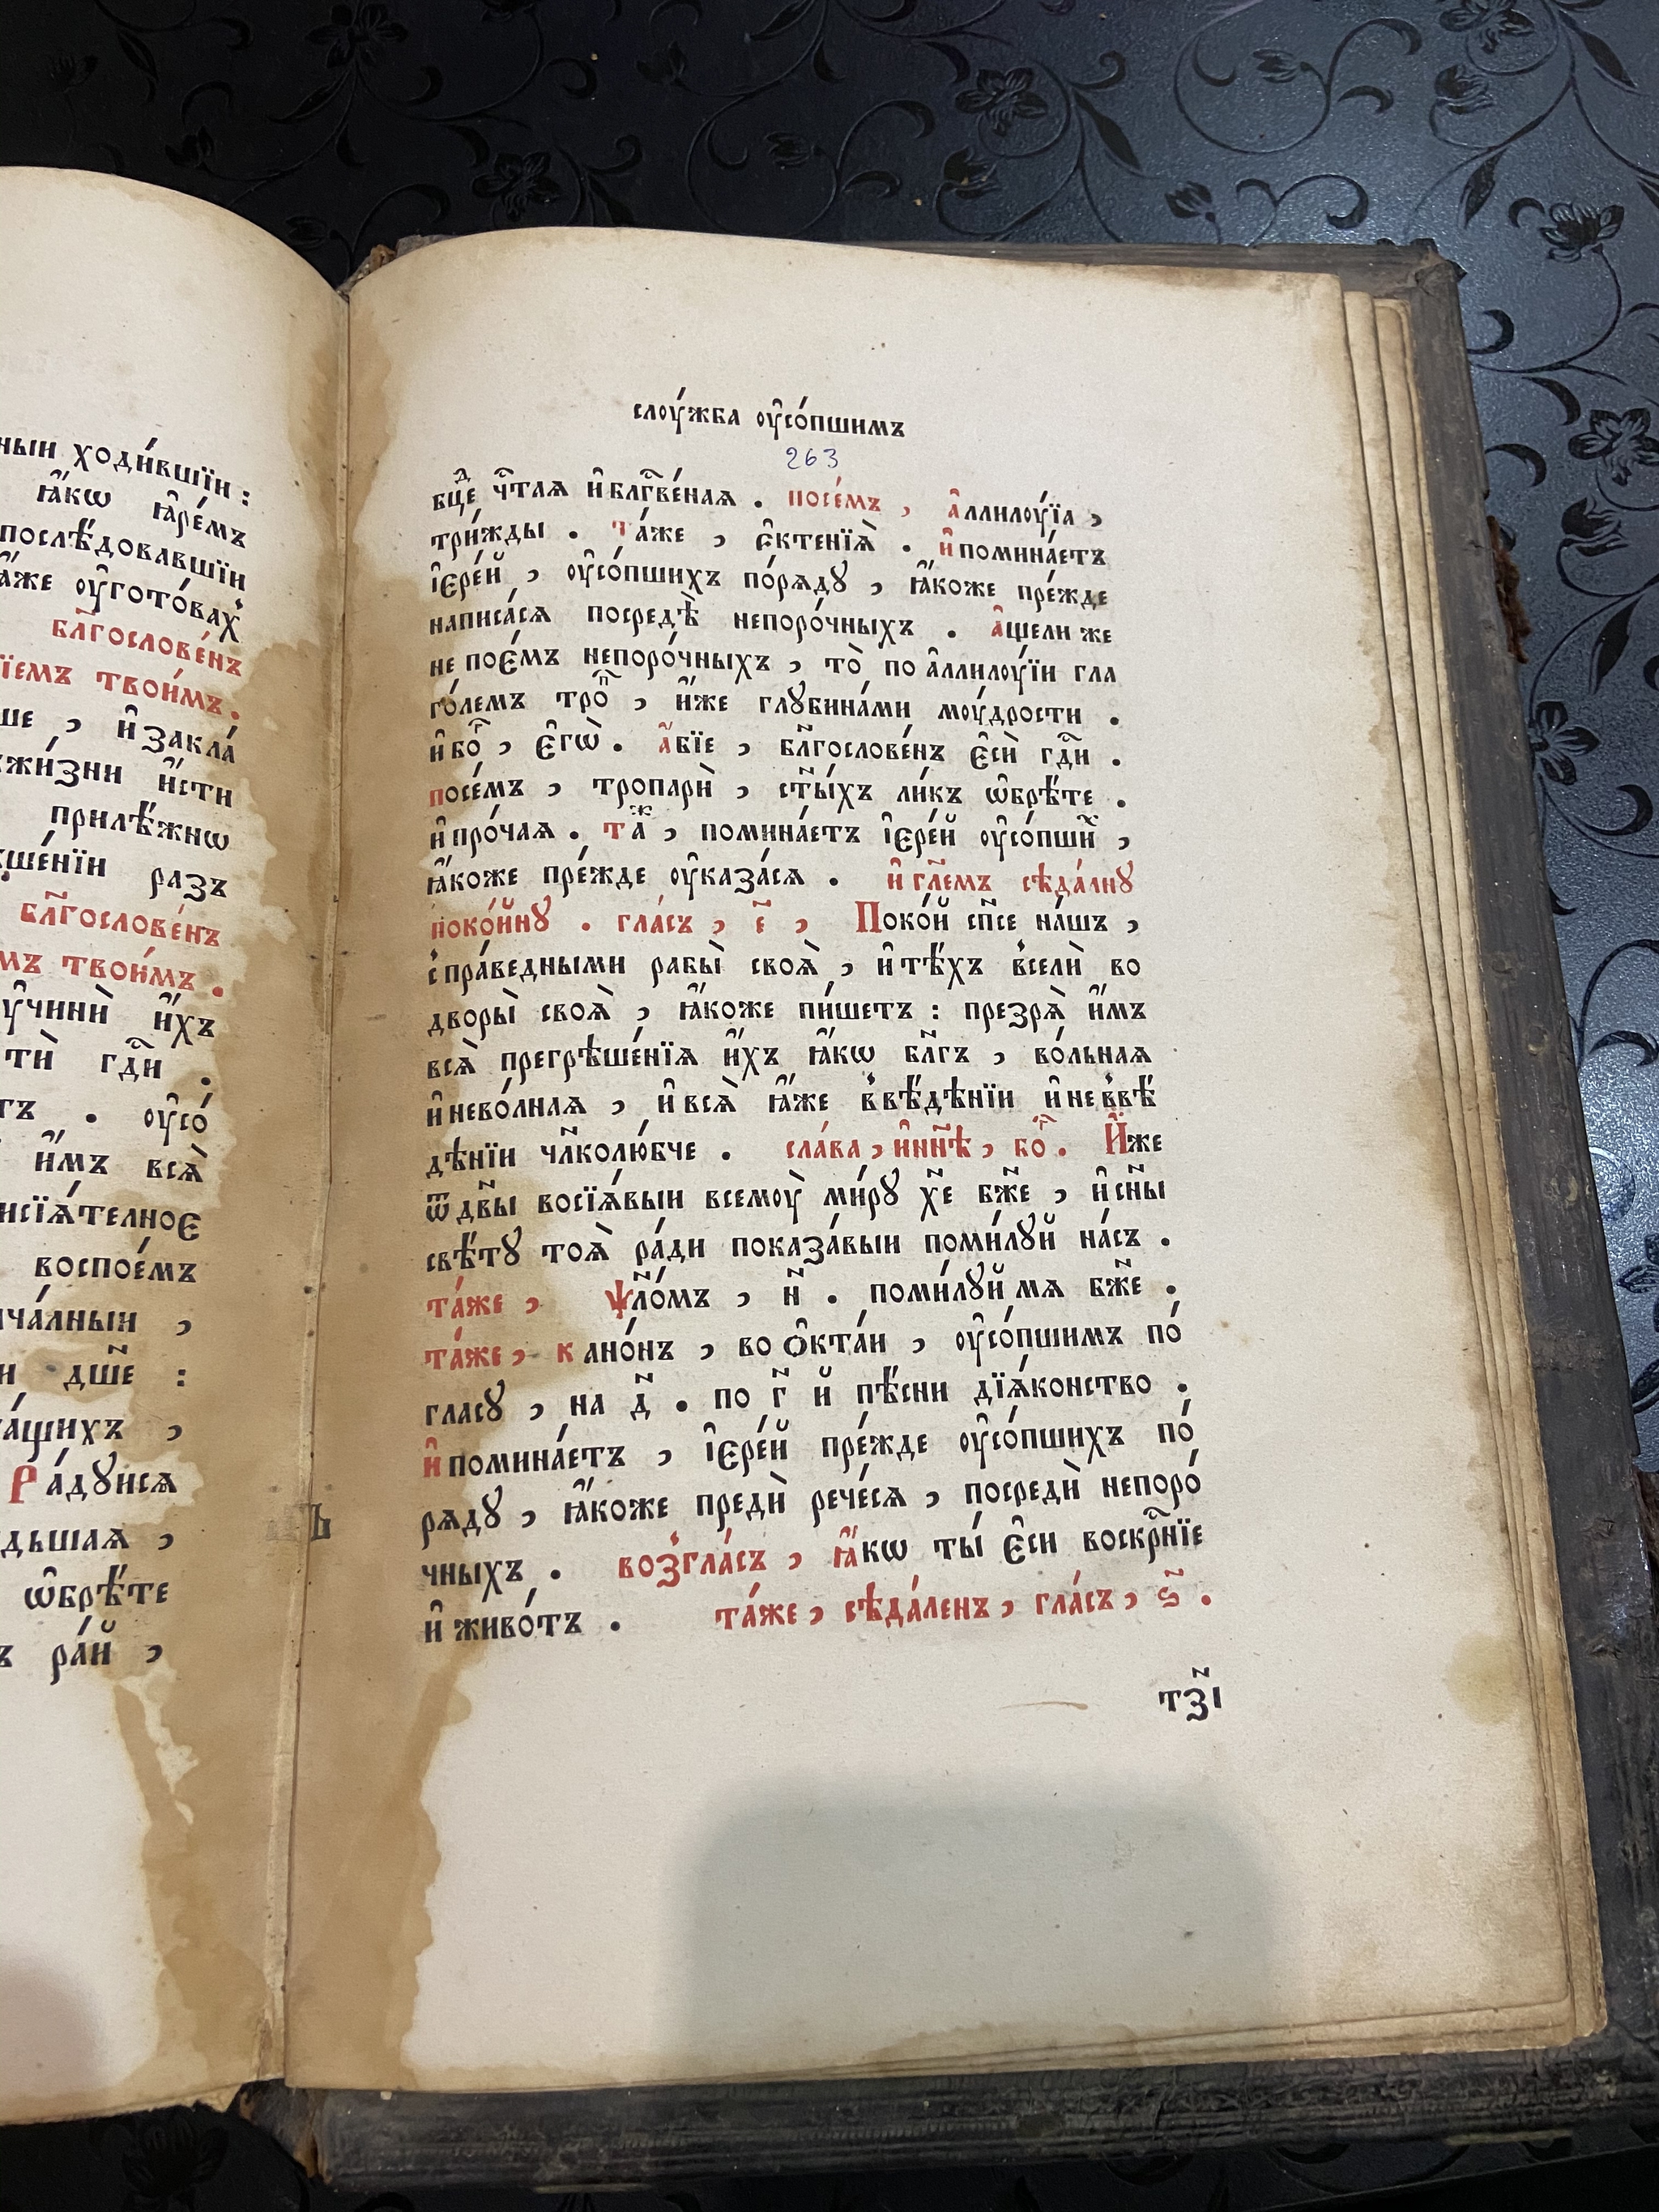 ныи ходи́вшїи :
ꙗ҆́кѡ ꙗ҆ре́мъ
послѣ́довавшїи
ꙗ҆́же оу҆гото́вахꙋ
бл҃гослове́нъ
їемъ твои́мъ .
ше , и҆ закла́
жи́зни и҆́сти
прилѣ́жнѡ
ше́нїи разъ
бл҃гослове́нъ
мъ твои́мъ .
учинѝ и҆́хъ
ти̏ гдⷭ҇и .
гъ . оу҆со́
и҆́мъ всѧ̀
исїѧ́телное
воспое́мъ
ча́лныи ,
и дш҃е :
а́щихъ ,
Ра́дꙋисѧ
дьшаѧ ,
ѡ҆брѣ́те
ъ ра́й ,
слоу́жба оу҆со́пшимъ
263
бцⷣе чⷭ҇таѧ и҆ бл҃гве́наѧ . посе́мъ , а҆ллилоу́їа ,
три́жды . та́же , є҆ктенїѧ̀ . и҆ помина́етъ
і҆ере́й , оу҆со́пшихъ по́рѧдꙋ , ꙗ҆́коже пре́жде
написа́сѧ посредѣ̀ непоро́чныхъ . а҆щели же
не пое́мъ непоро́чныхъ , то̀ по а҆ллилоу́їи гла
го́лемъ тропⷬ҇ , и҆́же глꙋбина́ми моу́дрости .
и҆ боⷢ҇ , є҆гѡ̀ . а҆́бїе , бл҃гослове́нъ є҆сѝ гдⷭ҇и .
посе́мъ , тропарѝ , ст҃ы́хъ ли́къ ѡ҆брѣ́те .
и҆ про́чаѧ . таⷤ , помина́етъ і҆ере́й оу҆со́пшиⷯ ,
ꙗ҆́коже пре́жде оу҆каза́сѧ . и҆ гл҃емъ сѣда́лнꙋ
поко́йнꙋ . гла́съ , є҃ , Поко́й сп҃се на́шъ ,
с пра́ведными рабы̀ своѧ̀ , и҆ тѣ́хъ вселѝ во
дворы̀ своѧ̀ , ꙗ҆́коже пи́шетъ : презрѧ̀ и҆́мъ
всѧ̀ прегрѣше́нїѧ и҆́хъ ꙗ҆́кѡ бл҃гъ , во́льнаѧ
и҆ нево́лнаѧ , и҆ всѧ̀ ꙗ҆́же в вѣ́дѣнїи и҆ не в вѣ́
дѣнїи чл҃колю́бче . сла́ва , и҆ нн҃ѣ , боⷢ҇ . И҆́же
ѿ дв҃ы восїѧ́выи всемоу̀ ми́рꙋ хе҃ бж҃е , и҆ сн҃ы
свѣ́тꙋ тоѧ̀ ра́ди показа́выи поми́лꙋй на́съ .
та́же , ѱл҃о́мъ , н҃ . поми́лꙋй мѧ бж҃е .
та́же , кано́нъ , во ѻ҆кта́и , оу҆со́пшимъ по́
гласꙋ , на д҃ . по г҃ й пѣ́сни дїѧ́конство .
и҆ помина́етъ , і҆ере́й пре́жде оу҆со́пшихъ по́
рѧдꙋ , ꙗ҆́коже предѝ рече́сѧ , посредѝ непоро́
чныхъ . возгла́съ , ꙗ҆́кѡ ты̀ є҆си воскрⷭ҇нїе
и҆ живо́тъ . та́же , сѣда́ленъ , гла́съ , ѕ҃ .
тз҃і